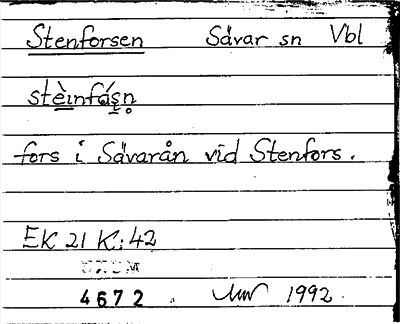 Stenforsen Sävar sn Vbl
stèinfáșṇ
fors i Sävarån vid Stenfors.
EK 21 K:42
4672 1992